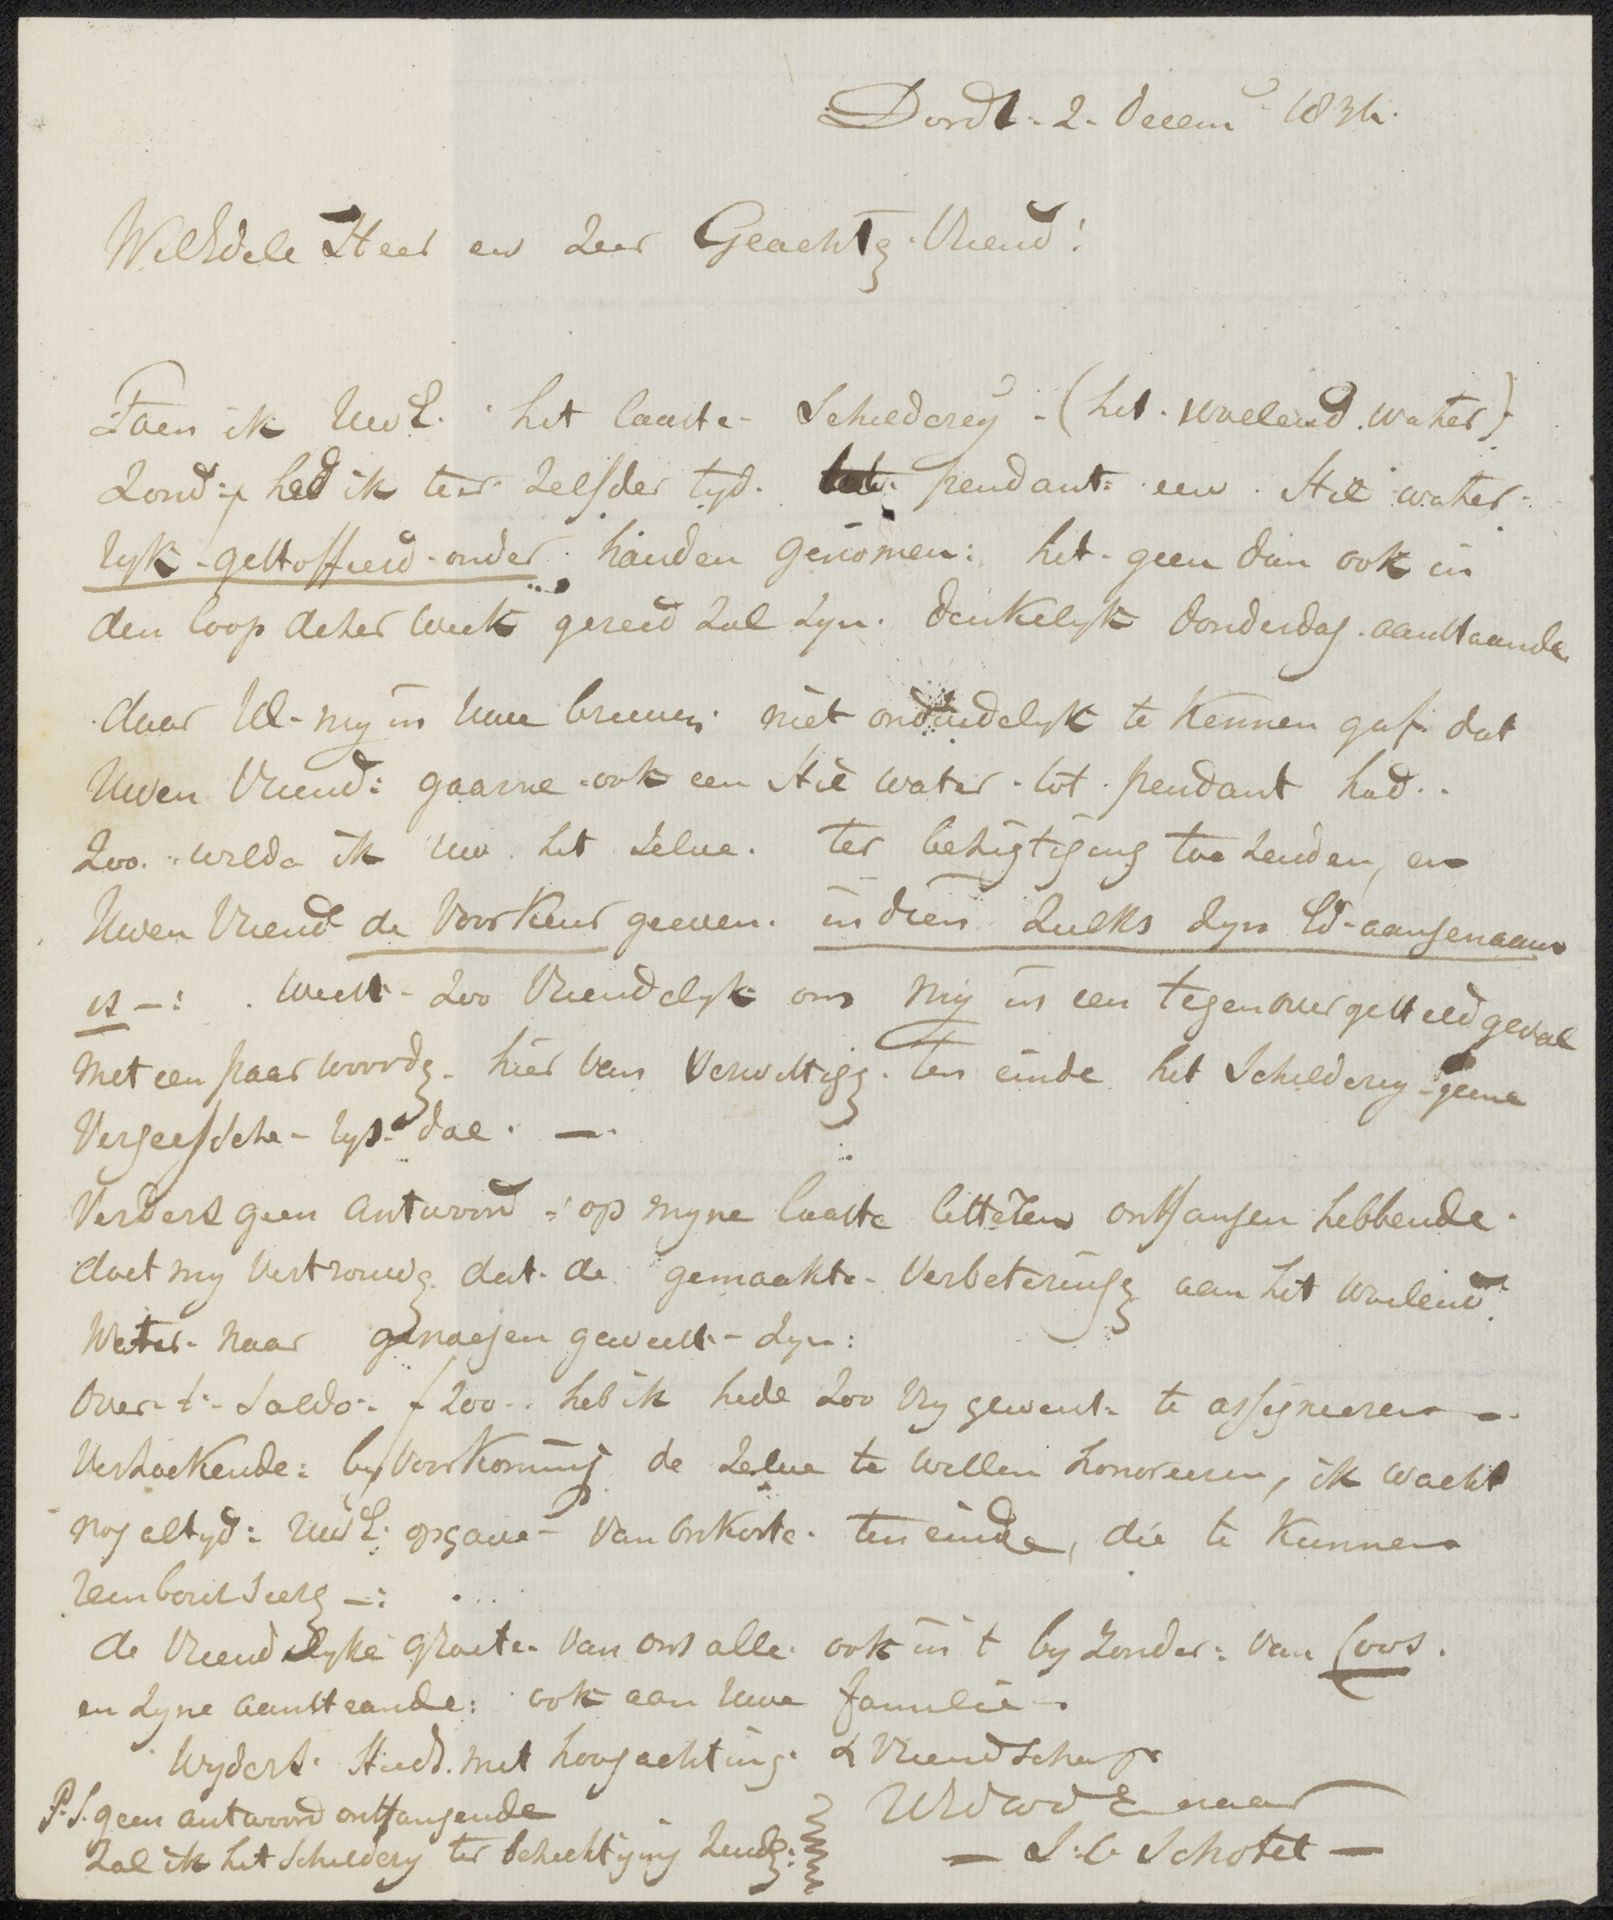 Dordt. 2. Decemr 1834.
WelEdele Heer en zeer Geachte Vriend!
Toen ik UwE. het laaste Schilderey (het woelend water)
zond: had ik ter zelfder tyd. pendant een Stil water
ryk gestoffeerd onder handen genomen: het geen dan ook in
den loop deser week gereed zal zyn. denkelyk donderdag aanstaande
daar UE my in Uwe brieven niet onduidelyk te kennen gaf dat
Uwen Vriend: gaarne ook een Stil water tot pendant had..
zoo wilde ik uw het zelve. ter bezigtiging toe zenden, en
Uwen Vriend de Voorkeur geeven. indien zulks zyn Ed aangenaam
is —: Weest zoo Vriendelyk om my in een tegenovergesteld geval
met een paar woorden hier van Verwittigen. ten einde het Schilderey geene
Vergeefsche rys dae. —.
Verders geen antwoord op myne laaste letteren ontfangen hebbende.
doet my Vertrouwen dat de gemaakte Verbeteringen aan het woelend
Water naar genoegen geweest zyn:
Over t Saldo f 200.. heb ik hede zoo Vry geweest te assigneeren —.
Verzoekende: by Voorkoming de zelve te willen honoreeren, ik wacht
nog altyd: UwE. opgave Van onkoste. ten einde, die te kunnen
remboursseeren —: ...
de Vriendelyke groete Van ons alle. ook in t byzonder: van Coos.
en zyne aanstaande: ook aan Uwe familie.
Wyders. Steeds. met hoogachting & Vriendschap
UEdwd Enaar
— J: C Schotel —
P.S. geen antwoord ontfangende
zal ik het Schildery ter bezichtiging zenden: